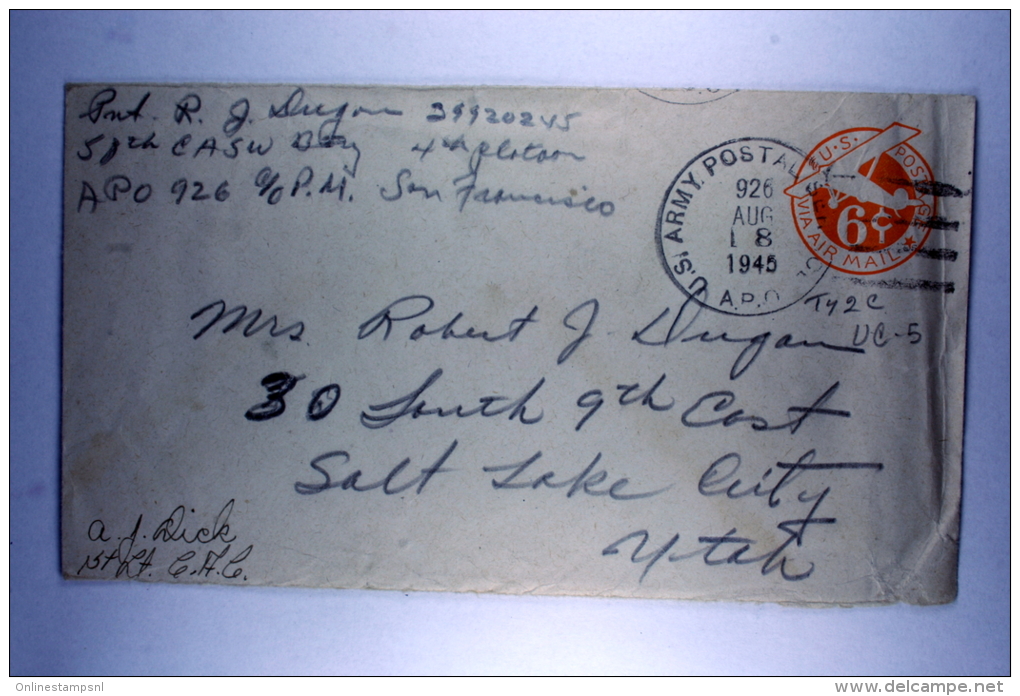 Pvt. R. J. Dugan 39920245
58th CASW Btry 4th platoon
APO 926 c/o P.M. San Francisco
U.S. ARMY. POSTAL
926
AUG
18
1945
A.P.O.
U.S. POSTAGE
6¢
VIA AIR MAIL
Ty2C
UC-5
Mrs Robert J. Dugan
30 South 9th East
Salt Lake City
Utah
A. J. Dick
1st Lt. C.A.C.
Onlinestampsnl
www.delcampe.net